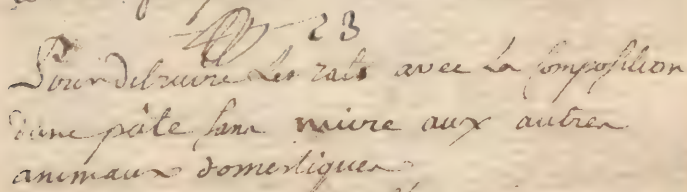 23
Pour détruire les rats avec la Composition
d'une pâte sans nuire aux autres
animaux domestiques